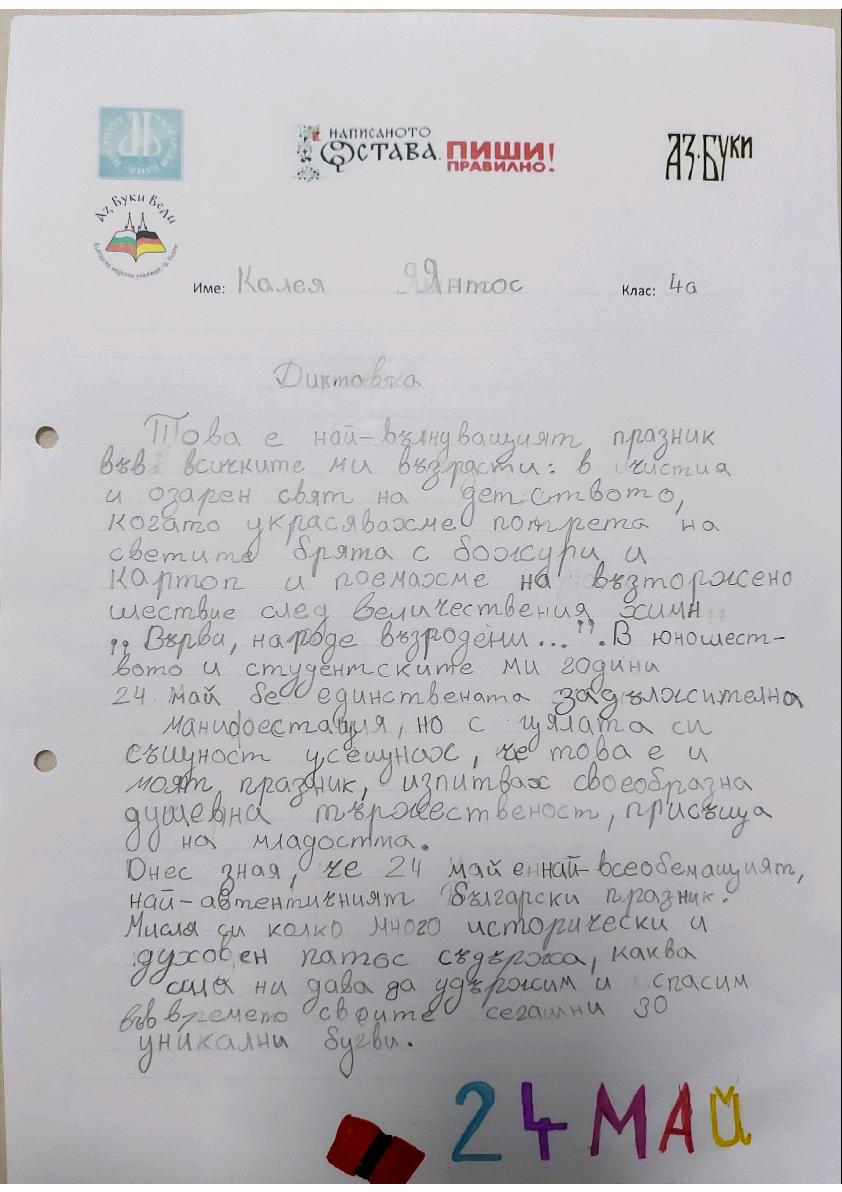 НАПИСАНОТО
ОСТАВА.
ПИШИ!
ПРАВИЛНО.
АЗ·БУКИ
Аз Буки Веди
Име: Калея Янтос Клас: 4а
Диктовка
Това е най-вълнуващият празник
във всичките ми възрасти: в чистия
и озарен свят на детството,
когато украсявахме портрета на
светите братя с божури и
картоп и поемахме на възторжено
шествие след величествения химн
„Върви, народе възродени...". В юношест-
вото и студентските ми години
24 май бе единствената задължителна
манифестация, но с цялата си
същност усещнах, че това е и
моят празник, изпитвах своеобразна
душевна тържественост, присъща
на младостта.
Днес зная, че 24 май е най-всеобемащият,
най-автентичният български празник.
Мисля си колко много исторически и
духовен патос съдържа, каква
сила ни дава да удържим и спасим
във времето своите сегашни 30
уникални букви.
24 МАЙ